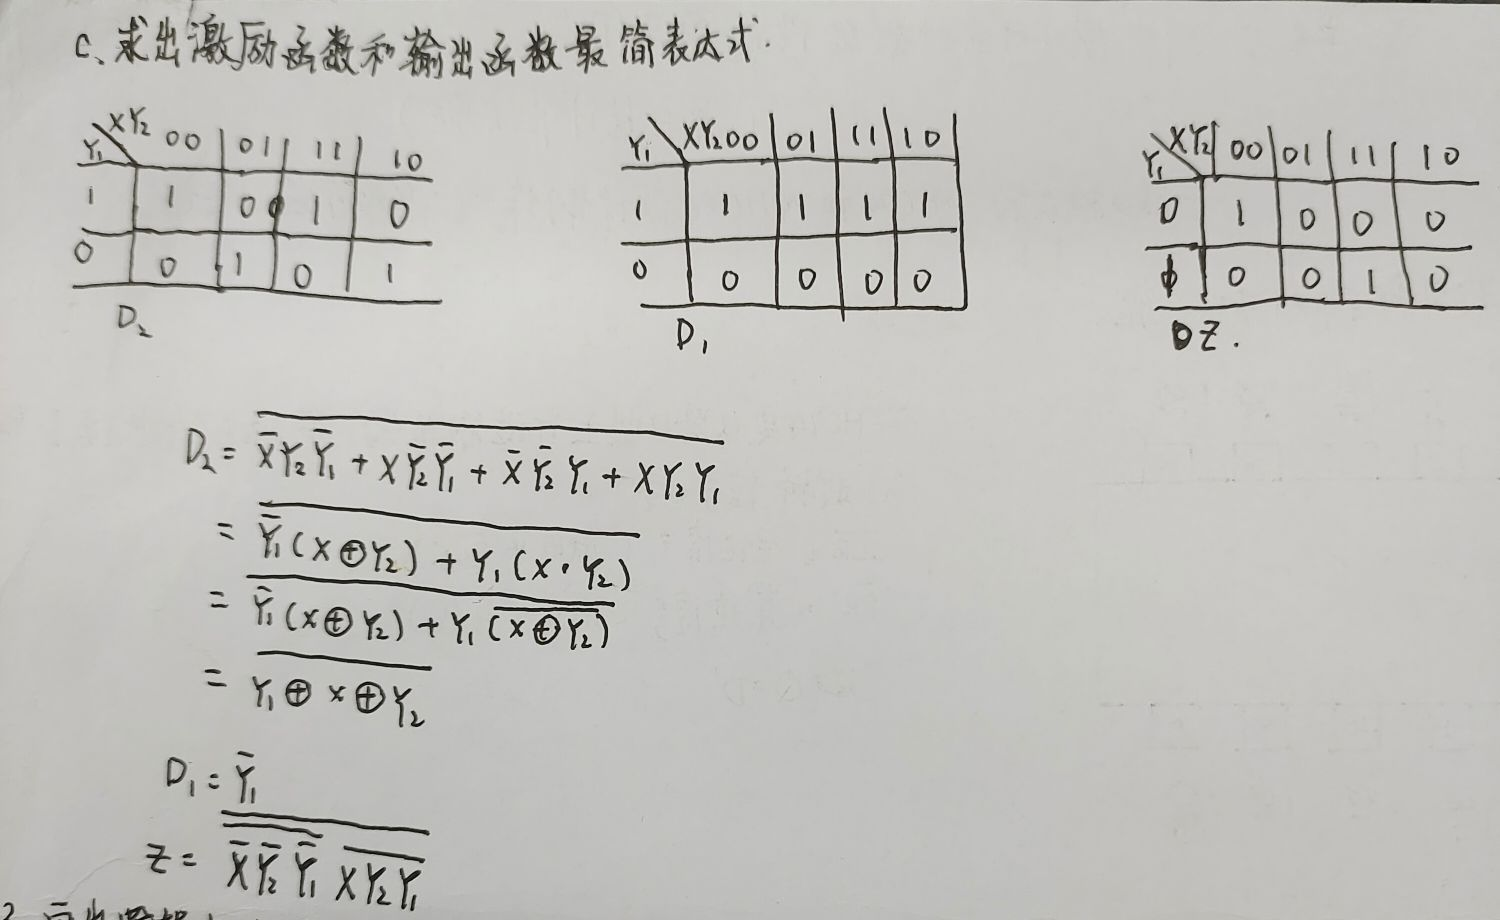 c、求出激励函数和输出函数最简表达式.
Y₁\XY₂ 00 01 11 10
1 1 0 1 0
0 0 1 0 1
D₂
Y₁\XY₂ 00 01 11 10
1 1 1 1 1
0 0 0 0 0
D₁
Y₁\XY₂ 00 01 11 10
0 1 0 0 0
1 0 0 1 0
Z.
D₂ = \overline{X̄Y₂Ȳ₁ + XȲ₂Ȳ₁ + X̄Ȳ₂Y₁ + XY₂Y₁}
= \overline{Ȳ₁(X⊕Y₂) + Y₁(X·Y₂)}
= \overline{Ȳ₁(X⊕Y₂) + Y₁(\overline{X⊕Y₂})}
= \overline{Y₁⊕X⊕Y₂}
D₁ = Ȳ₁
Z = \overline{\overline{X̄Ȳ₂Ȳ₁} \overline{XY₂Y₁}}